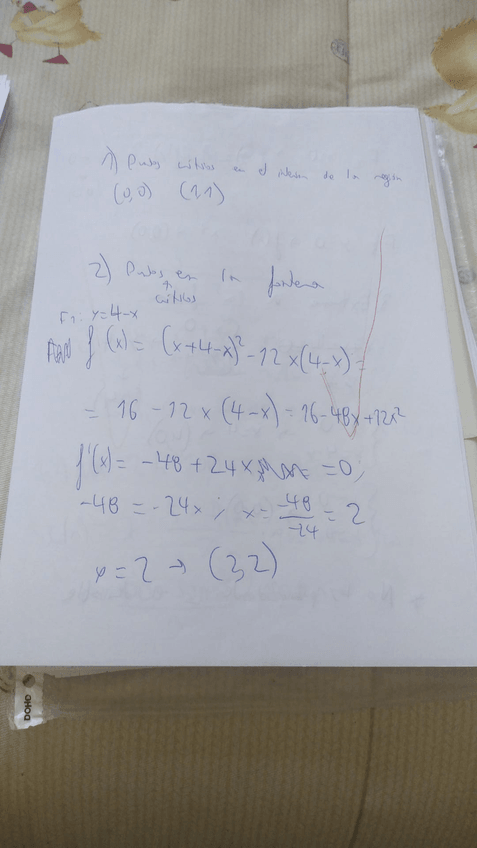 1) Puntos críticos en el interior de la región
(0,0) (1,1)
2) Puntos en la frontera
críticos
F1: y=4-x
f(x) = (x+4-x)² - 12x(4-x) =
= 16 - 12x(4-x) = 16-48x+12x²
f'(x) = -48+24x =0;
-48 = -24x; x = -48/-24 = 2
y = 2 → (2,2)
DOHO